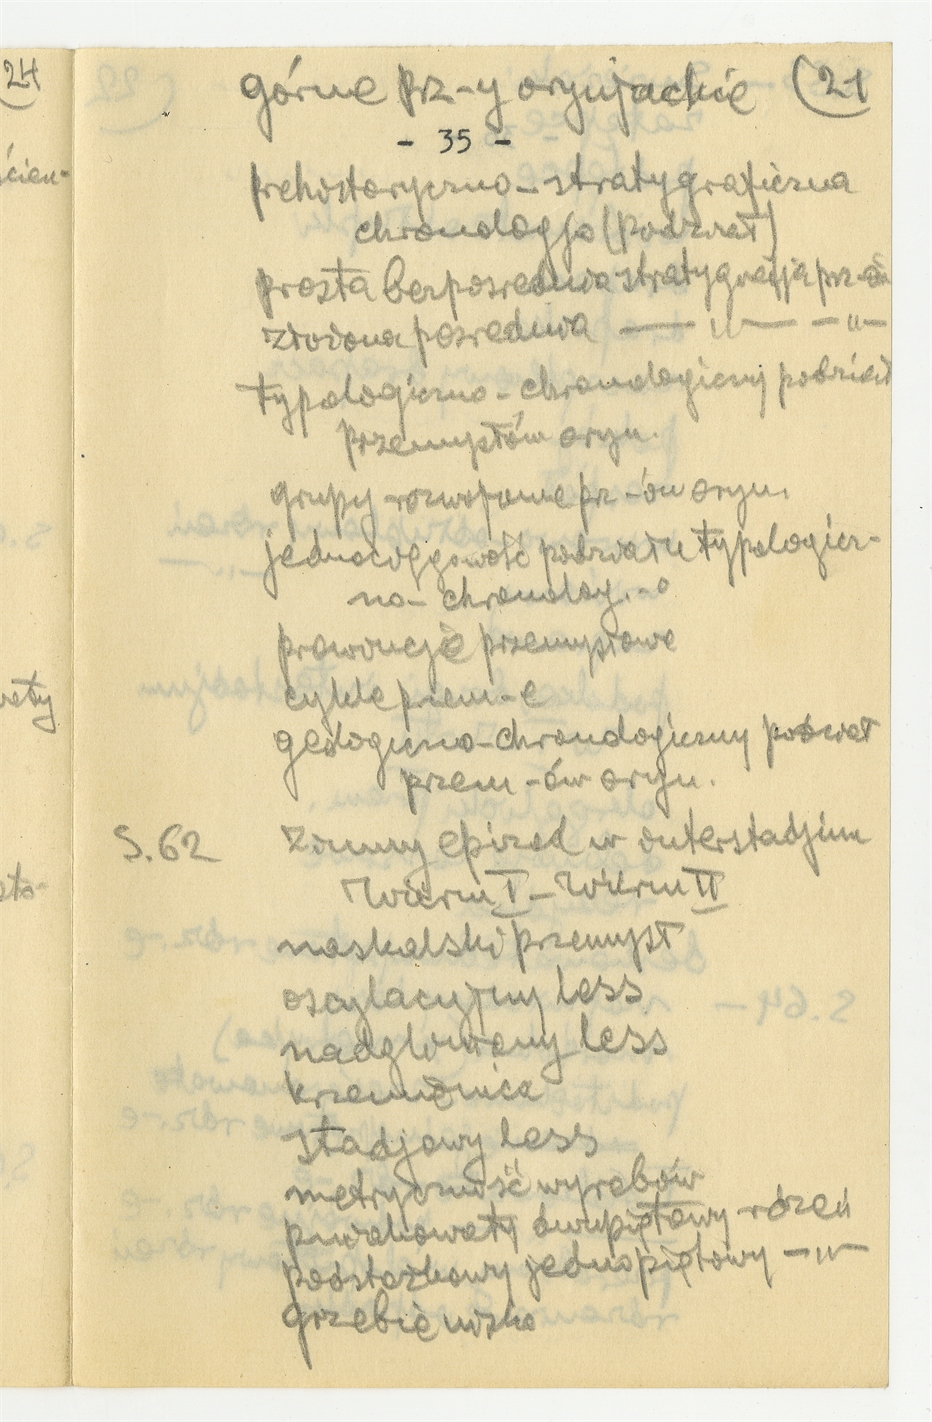 24
górne prz-y orynjackie (21
- 35 -
ścien-
prehistoryczno-stratygraficzna
chronologja (podział)
prosta bezpośrednia stratygrafja prz-ów
złożona pośrednia — " — — " —
typologiczno-chronologiczny podział
przemysłów oryn.
grupy rozwojowe prz-ów oryn.
jednociągowość podziału typologicz-
no-chronolog.-o
prowincje przemysłowe
cykle przem-e
wały
geologiczno-chronologiczny podział
przem-ów oryn.
S.62 Zimny epizod w interstadjum
Würm I - Würm II
sto-
naskalski przemysł
oscylacyjny less
nadglowany less
krzemienica
stadjowy less
metryczność wyrobów
puchowaty dwupiętowy rdzeń
podstożkowy jednopiętowy — " —
grzebienisko